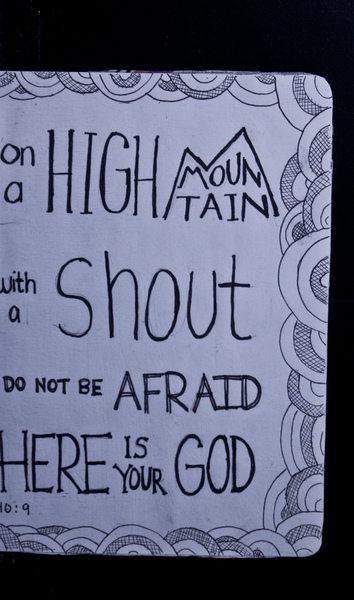 on a HIGH MOUNTAIN
with a Shout
DO NOT BE AFRAID
HERE IS YOUR GOD
40:9